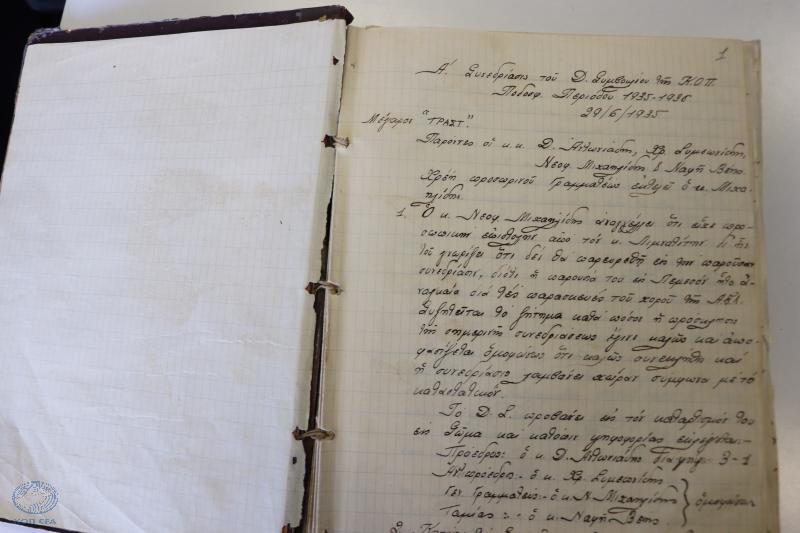 1
Α! Συνεδρίασις τοῦ Δ. Συμβουλίου τῆς Κ.Ο.Π.
Ποδοσφ. Περιόδου 1935-1936
29/6/1935
Μέγαρον "ΤΡΑΣΤ".
Παρόντες οἱ κ.κ. Δ. Ἀντωνιάδης, Χρ. Συμεωνίδης,
Νεοφ. Μιχαηλίδης & Ναφῆ Βέης.
Χρέη προσωρινοῦ Γραμματέως ἐκτελεῖ ὁ κ. Μιχα-
ηλίδης.
1. Ὁ κ. Νεοφ. Μιχαηλίδης ἀναγγέλλει ὅτι εἶχε προ-
σωπικὴν ἐπιστολὴν ἀπὸ τὸν κ. Λιμνατίτην δι' ἧς
τοῦ γνωρίζει ὅτι δὲν θὰ παρευρεθῇ εἰς τὴν παροῦσαν
συνεδρίασιν, διότι ἡ παρουσία του εἰς Λεμεσὸν ἦτο ἀ-
ναγκαία διὰ τὰς παρασκευὰς τοῦ χοροῦ τῆς Α.Ε.Λ.
Συζητεῖται τὸ ζήτημα κατὰ πόσον ἡ πρόσκλησις
τῆς σημερινῆς συνεδριάσεως ἔγινε καλῶς καὶ ἀπο-
φασίζεται ὁμοφώνως ὅτι καλῶς συνεκλήθη καὶ
ἡ συνεδρίασις λαμβάνει χώραν σύμφωνα μὲ τὸ
καταστατικόν.
Τὸ Δ.Σ. προβαίνει εἰς τὸν καταρτισμόν του
εἰς Σῶμα καὶ κατόπιν ψηφοφορίας ἐκλέγεται:-
Πρόεδρος: ὁ κ. Δ. Ἀντωνιάδης διὰ ψήφ. 3-1
Ἀντιπρόεδρος:- ὁ κ. Χρ. Συμεωνίδης
Γεν. Γραμματεύς:- ὁ κ. Ν. Μιχαηλίδης } ὁμοφώνως
Ταμίας:- ὁ κ. Ναφῆ Βέης
2.
ΚΟΠ CFA